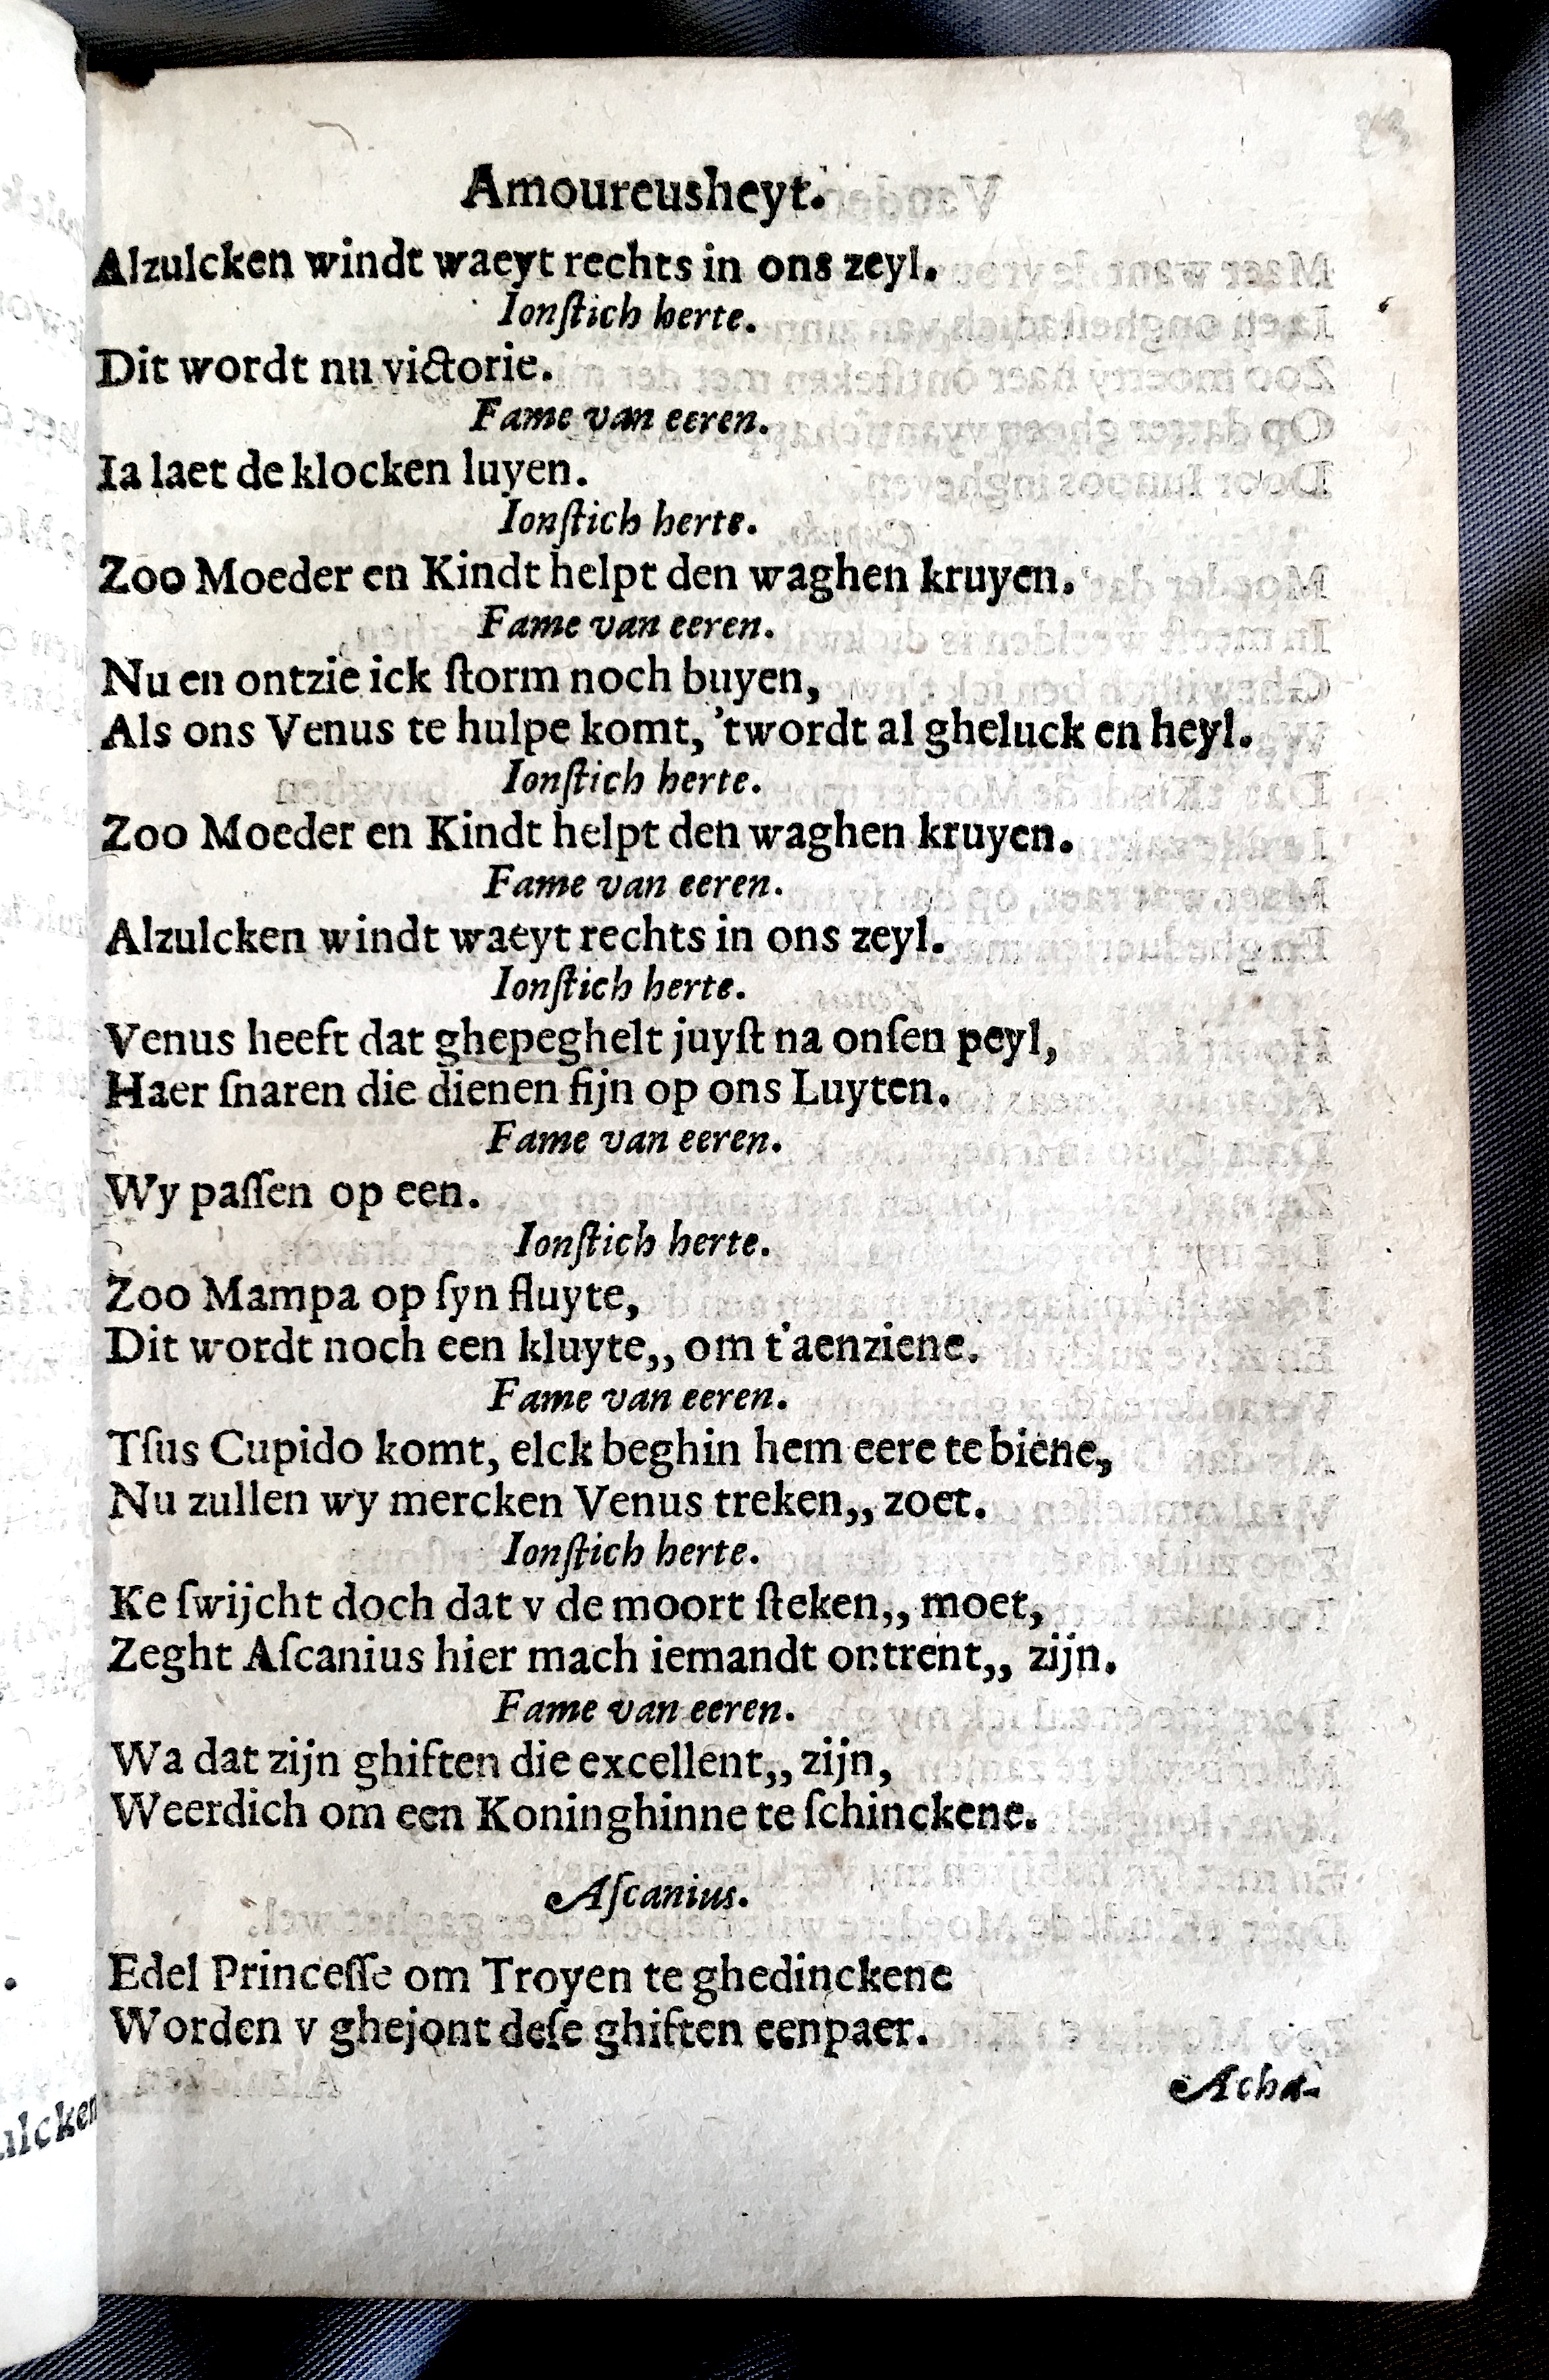 Amoureusheyt.
Alzulcken windt waeyt rechts in ons zeyl.
Ionſtich herte.
Dit wordt nu victorie.
Fame van eeren.
Ia laet de klocken luyen.
Ionſtich herte.
Zoo Moeder en Kindt helpt den waghen kruyen.
Fame van eeren.
Nu en ontzie ick ſtorm noch buyen,
Als ons Venus te hulpe komt, 'twordt al gheluck en heyl.
Ionſtich herte.
Zoo Moeder en Kindt helpt den waghen kruyen.
Fame van eeren.
Alzulcken windt waeyt rechts in ons zeyl.
Ionſtich herte.
Venus heeft dat ghepeghelt juyſt na onſen peyl,
Haer ſnaren die dienen fijn op ons Luyten.
Fame van eeren.
Wy paſſen op een.
Ionſtich herte.
Zoo Mampa op ſyn fluyte,
Dit wordt noch een kluyte,, om t'aenziene.
Fame van eeren.
Tſus Cupido komt, elck beghin hem eere te biene,
Nu zullen wy mercken Venus treken,, zoet.
Ionſtich herte.
Ke ſwijcht doch dat v de moort ſteken,, moet,
Zeght Aſcanius hier mach iemandt ontrent,, zijn.
Fame van eeren.
Wa dat zijn ghiften die excellent,, zijn,
Weerdich om een Koninghinne te ſchinckene.
Aſcanius.
Edel Princeſſe om Troyen te ghedinckene
Worden v ghejont deſe ghiften eenpaer.
Acha-
ulcken